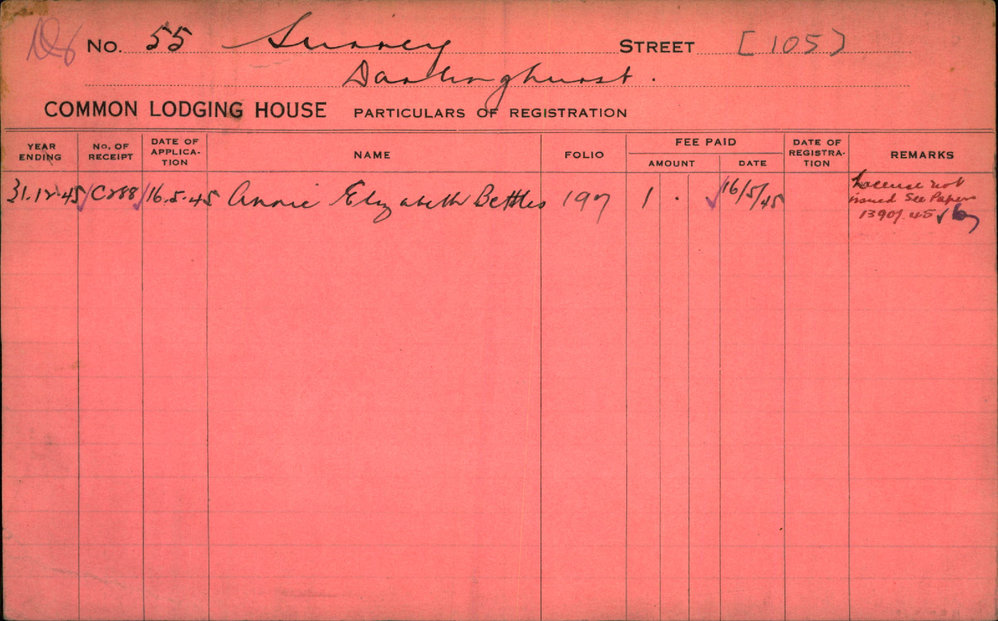 No. 55 Surrey STREET [105]
Darlinghurst.
COMMON LODGING HOUSE PARTICULARS OF REGISTRATION
YEAR ENDING No. OF RECEIPT DATE OF APPLICA-TION NAME FOLIO FEE PAID AMOUNT DATE DATE OF REGISTRA-TION REMARKS
31.12.45 C288 16.5.45 Annie Elizabeth Bettles 197 1 . 16/5/45 License not
issued See Papers
1390/45